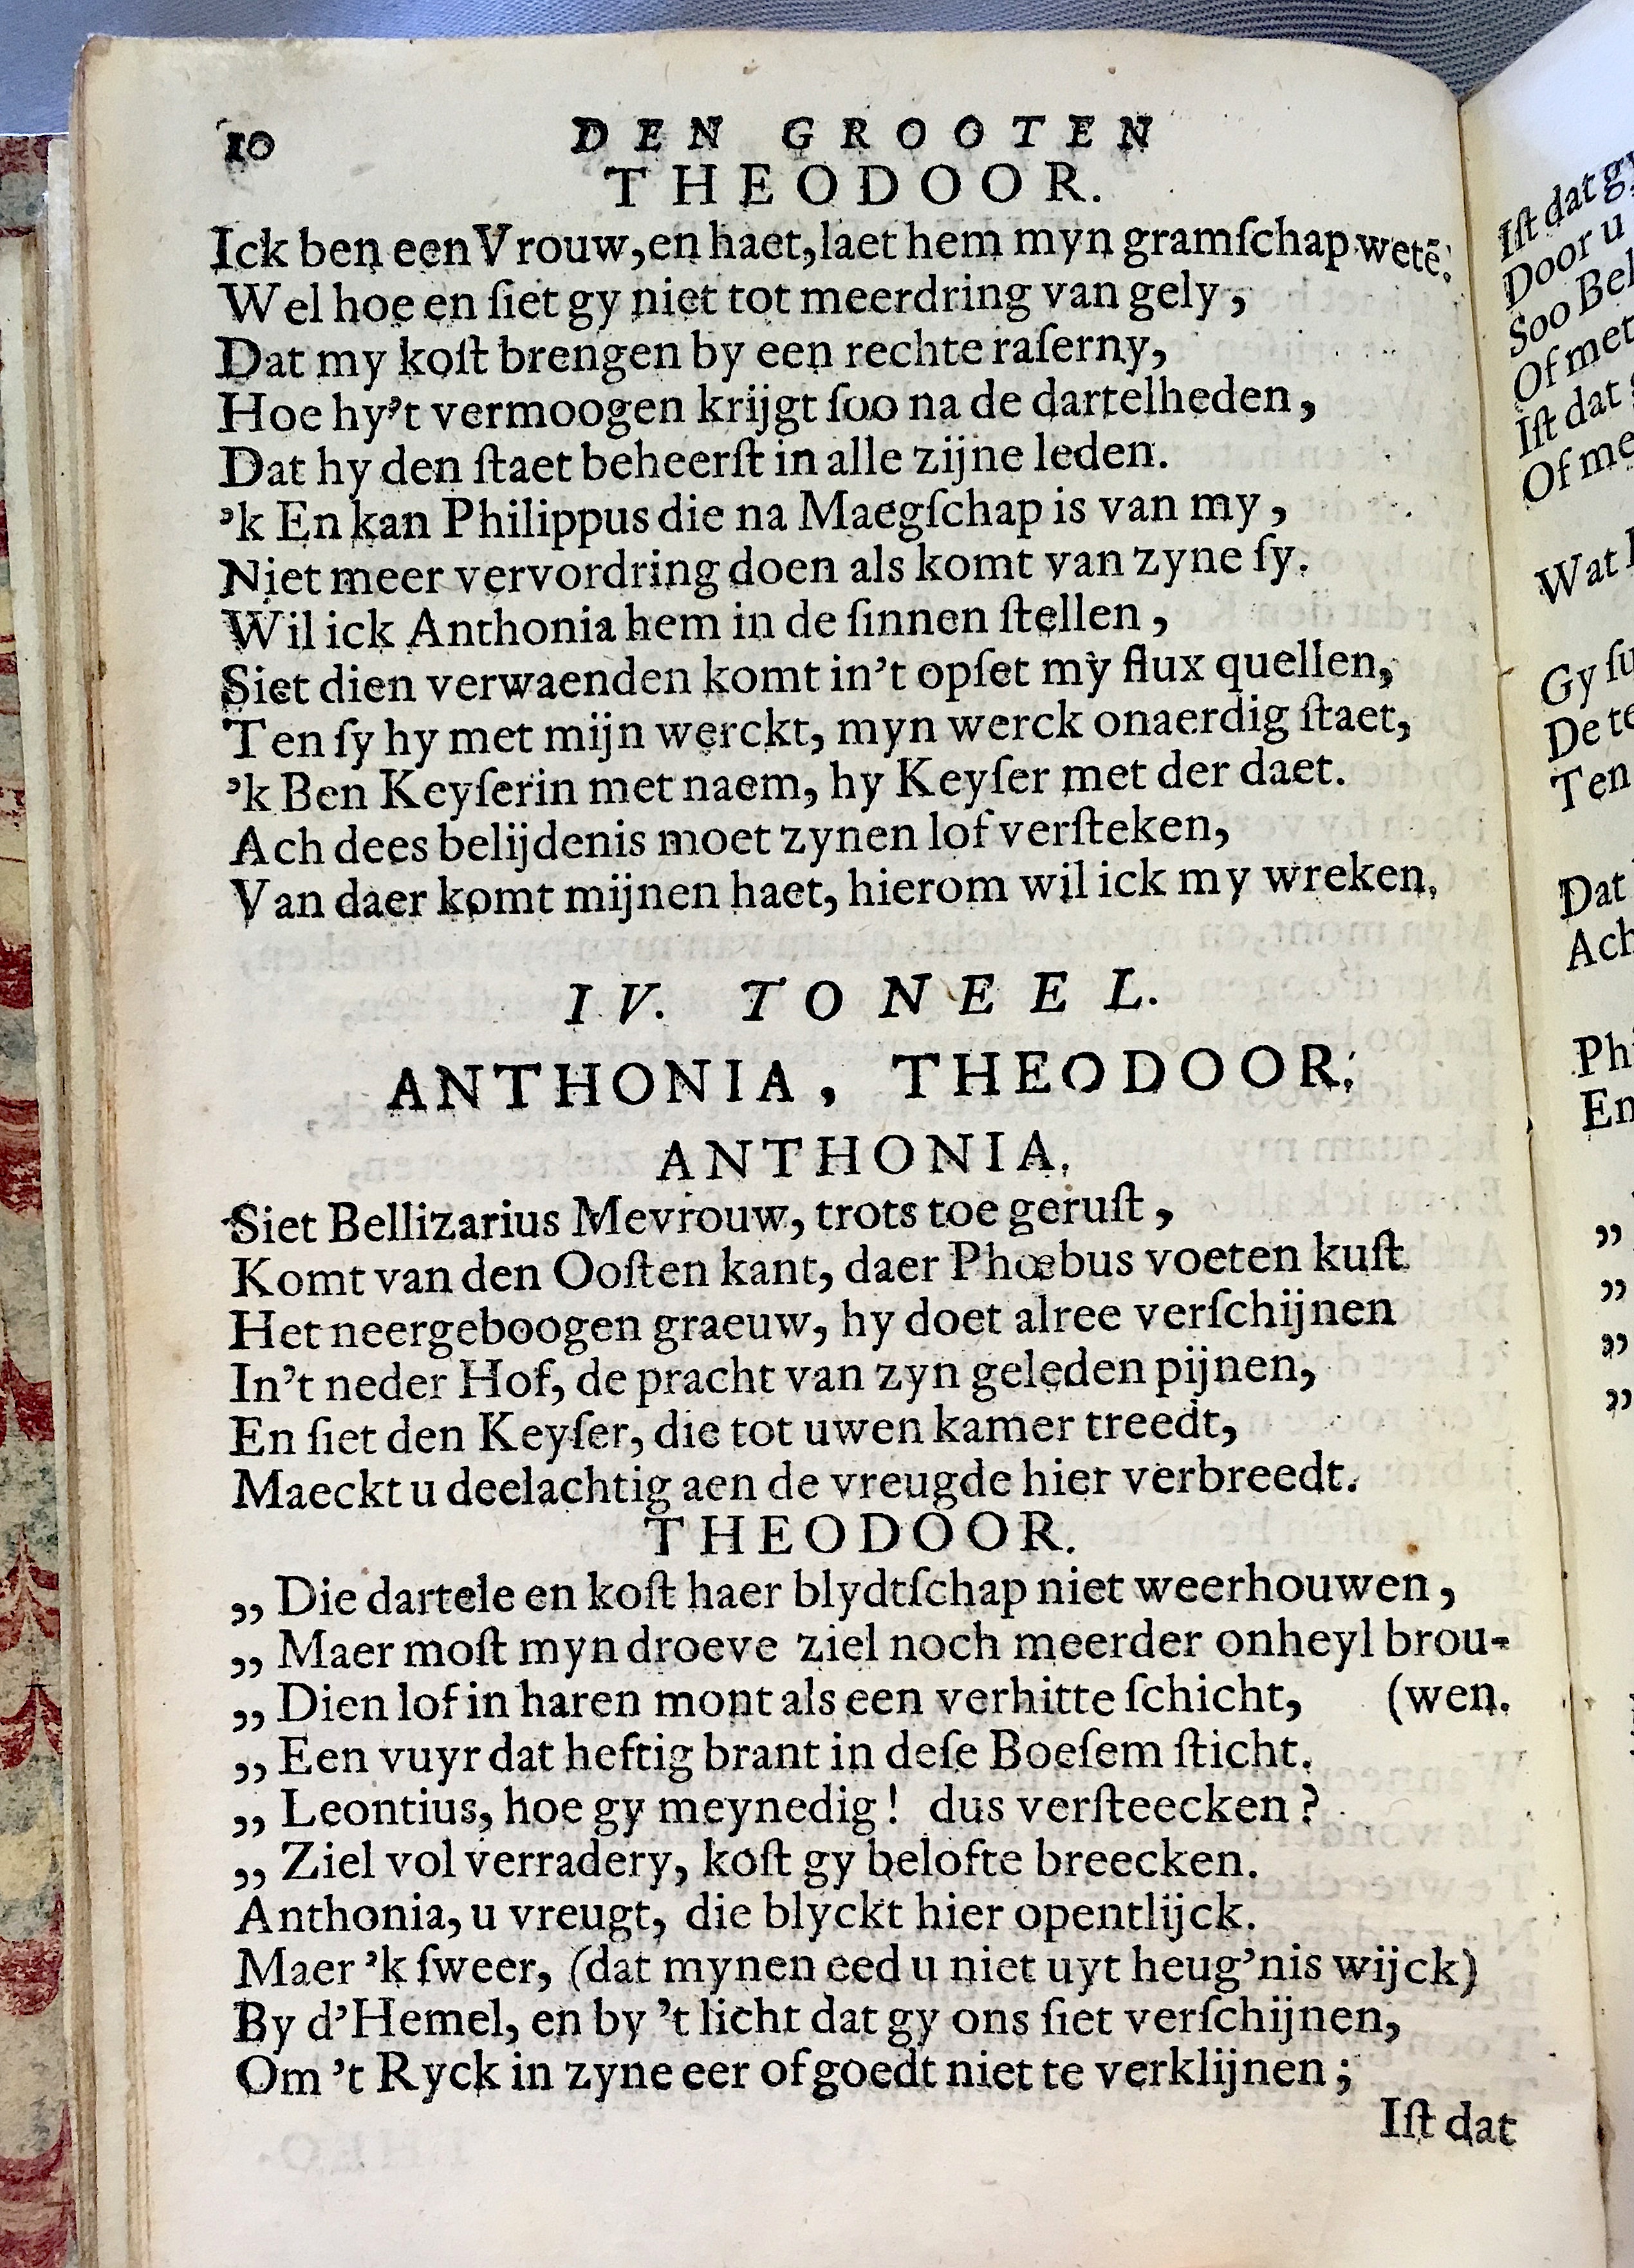 10 DEN GROOTEN
THEODOOR.
Ick ben een Vrouw, en haet, laet hem myn gramſchap wetē.
Wel hoe en ſiet gy niet tot meerdring van gely,
Dat my koſt brengen by een rechte raſerny,
Hoe hy't vermoogen krijgt ſoo na de dartelheden,
Dat hy den ſtaet beheerſt in alle zijne leden.
'k En kan Philippus die na Maegſchap is van my,
Niet meer vervordring doen als komt van zyne ſy.
Wil ick Anthonia hem in de ſinnen ſtellen,
Siet dien verwaenden komt in't opſet my flux quellen,
Ten ſy hy met mijn werckt, myn werck onaerdig ſtaet,
'k Ben Keyſerin met naem, hy Keyſer met der daet.
Ach dees belijdenis moet zynen lof verſteken,
Van daer komt mijnen haet, hierom wil ick my wreken,
IV. TONEEL.
ANTHONIA, THEODOOR.
ANTHONIA.
Siet Bellizarius Mevrouw, trots toe geruſt,
Komt van den Ooſten kant, daer Phœbus voeten kuſt
Het neergeboogen graeuw, hy doet alree verſchijnen
In't neder Hof, de pracht van zyn geleden pijnen,
En ſiet den Keyſer, die tot uwen kamer treedt,
Maeckt u deelachtig aen de vreugde hier verbreedt.
THEODOOR.
„ Die dartele en koſt haer blydtſchap niet weerhouwen,
„ Maer moſt myn droeve ziel noch meerder onheyl brou-
„ Dien lof in haren mont als een verhitte ſchicht, (wen.
„ Een vuyr dat heftig brant in deſe Boeſem ſticht.
„ Leontius, hoe gy meynedig! dus verſteecken?
„ Ziel vol verradery, koſt gy belofte breecken.
Anthonia, u vreugt, die blyckt hier opentlijck.
Maer 'k ſweer, (dat mynen eed u niet uyt heug'nis wijck)
By d'Hemel, en by 't licht dat gy ons ſiet verſchijnen,
Om 't Ryck in zyne eer of goedt niet te verklijnen;
Iſt dat
Iſt dat gy
Door u
Soo Bel
Of met
Iſt dat
Of me
Wat
Gy ſu
De te
Ten
Dat
Ach
Phi
En
„
„
„
„